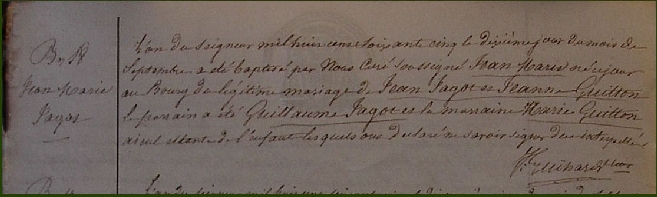 B. 
Jean Marie
Jagot
L'an du Seigneur mil huit cent soixante cinq le dixième jour du mois de
Septembre a été baptisé par Nous Curé soussigné Jean Marie né ce jour
au Bourg du légitime mariage de Jean Jagot et Jeanne Guitton
le parrain a été Guillaume Jagot et la marraine Marie Guitton
de l'enfant lesquels ont déclaré ne savoir signer de ce interpellés
Guihard
L'an du Seigneur mil huit